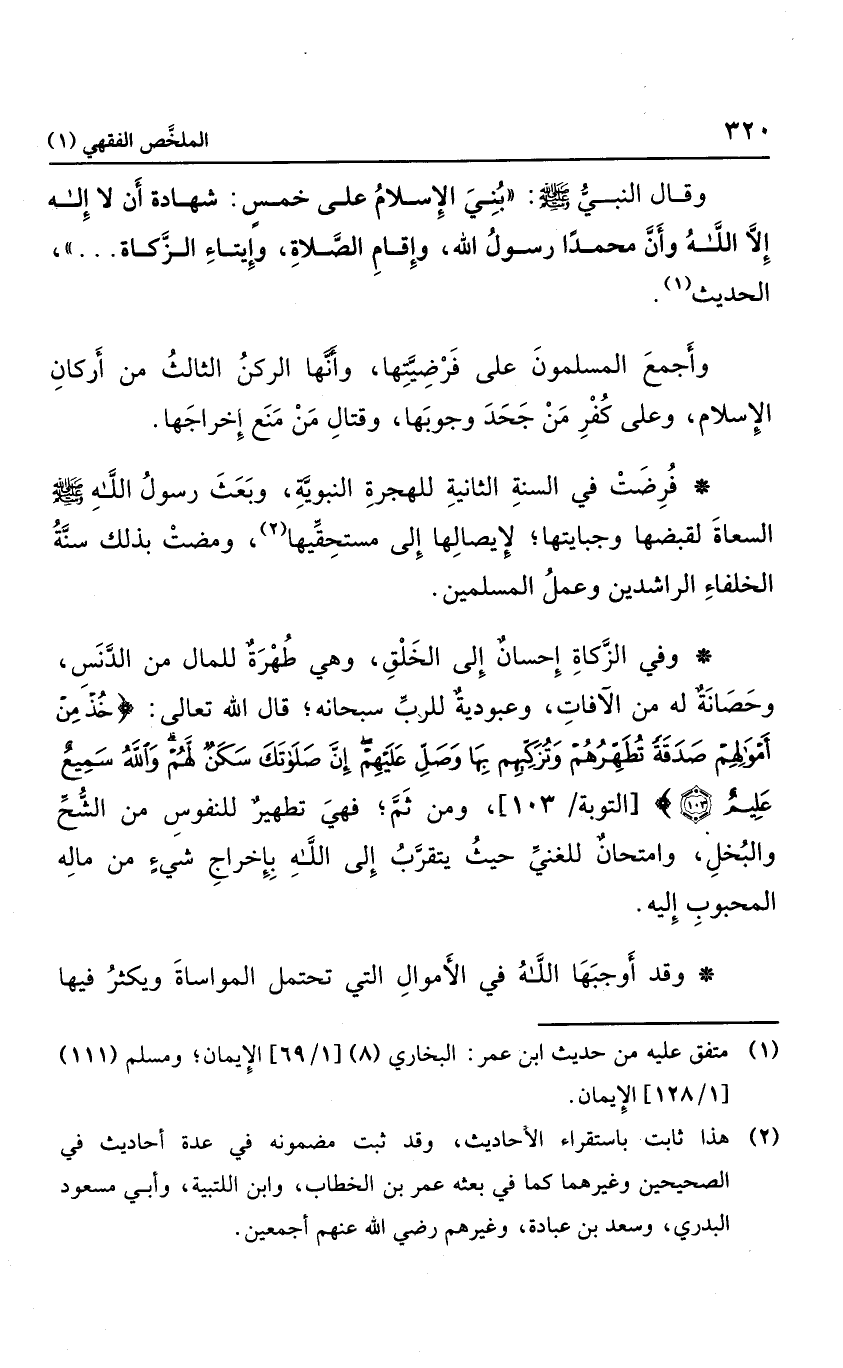 ٣٢٠
الملخَّص الفقهي (١)
وقـال النبـيُّ ﷺ: «بُنِـيَ الإِسـلامُ علـى خمـسٍ: شهـادة أَن لا إِلـٰه
إِلَّا اللَّـٰـهُ وأَنَّ محمـدًا رسـولُ الله، وإِقـامِ الصَّـلاةِ، وإِيتـاءِ الـزَّكـاة...»،
الحديث(١).
وأَجمعَ المسلمونَ على فَرْضِيَّتِها، وأَنَّها الركنُ الثالثُ من أَركانِ
الإِسلام، وعلى كُفْرِ مَنْ جَحَدَ وجوبَها، وقتالِ مَنْ مَنَع إِخراجَها.
* فُرِضَتْ في السنةِ الثانيةِ للهجرةِ النبويَّةِ، وبَعَثَ رسولُ اللَّـٰهِ ﷺ
السعاةَ لقبضها وجبايتها؛ لإِيصالِها إِلى مستحِقِّيها(٢)، ومضتْ بذلك سنَّةُ
الخلفاءِ الراشدين وعملُ المسلمين.
* وفي الزَّكاةِ إِحسانٌ إِلى الخَلْقِ، وهي طُهْرَةٌ للمال من الدَّنَسِ،
وحَصَانَةٌ له من الآفاتِ، وعبوديةٌ للربِّ سبحانه؛ قال الله تعالى: ﴿خُذْ مِنْ
أَمْوَٰلِهِمْ صَدَقَةً تُطَهِّرُهُمْ وَتُزَكِّيهِم بِهَا وَصَلِّ عَلَيْهِمْ ۖ إِنَّ صَلَوٰتَكَ سَكَنٌ لَّهُمْ ۗ وَٱللَّهُ سَمِيعٌ
عَلِيمٌ ١٠٣﴾ [التوبة/ ١٠٣]، ومن ثَمَّ؛ فهيَ تطهيرٌ للنفوس من الشُّحِّ
والبُخلِ، وامتحانٌ للغنيِّ حيثُ يتقربُ إِلى اللَّـٰهِ بِإِخراجِ شيءٍ من مالِه
المحبوبِ إِليه.
* وقد أَوجبَهَا اللَّـٰهُ في الأَموالِ التي تحتمل المواساةَ ويكثرُ فيها
(١) متفق عليه من حديث ابن عمر: البخاري (٨) [٦٩/١] الإِيمان؛ ومسلم (١١١)
[١٢٨/١] الإِيمان.
(٢) هذا ثابت باستقراء الأحاديث، وقد ثبت مضمونه في عدة أحاديث في
الصحيحين وغيرهما كما في بعثه عمر بن الخطاب، وابن اللتبية، وأبـي مسعود
البدري، وسعد بن عبادة، وغيرهم رضي الله عنهم أجمعين.